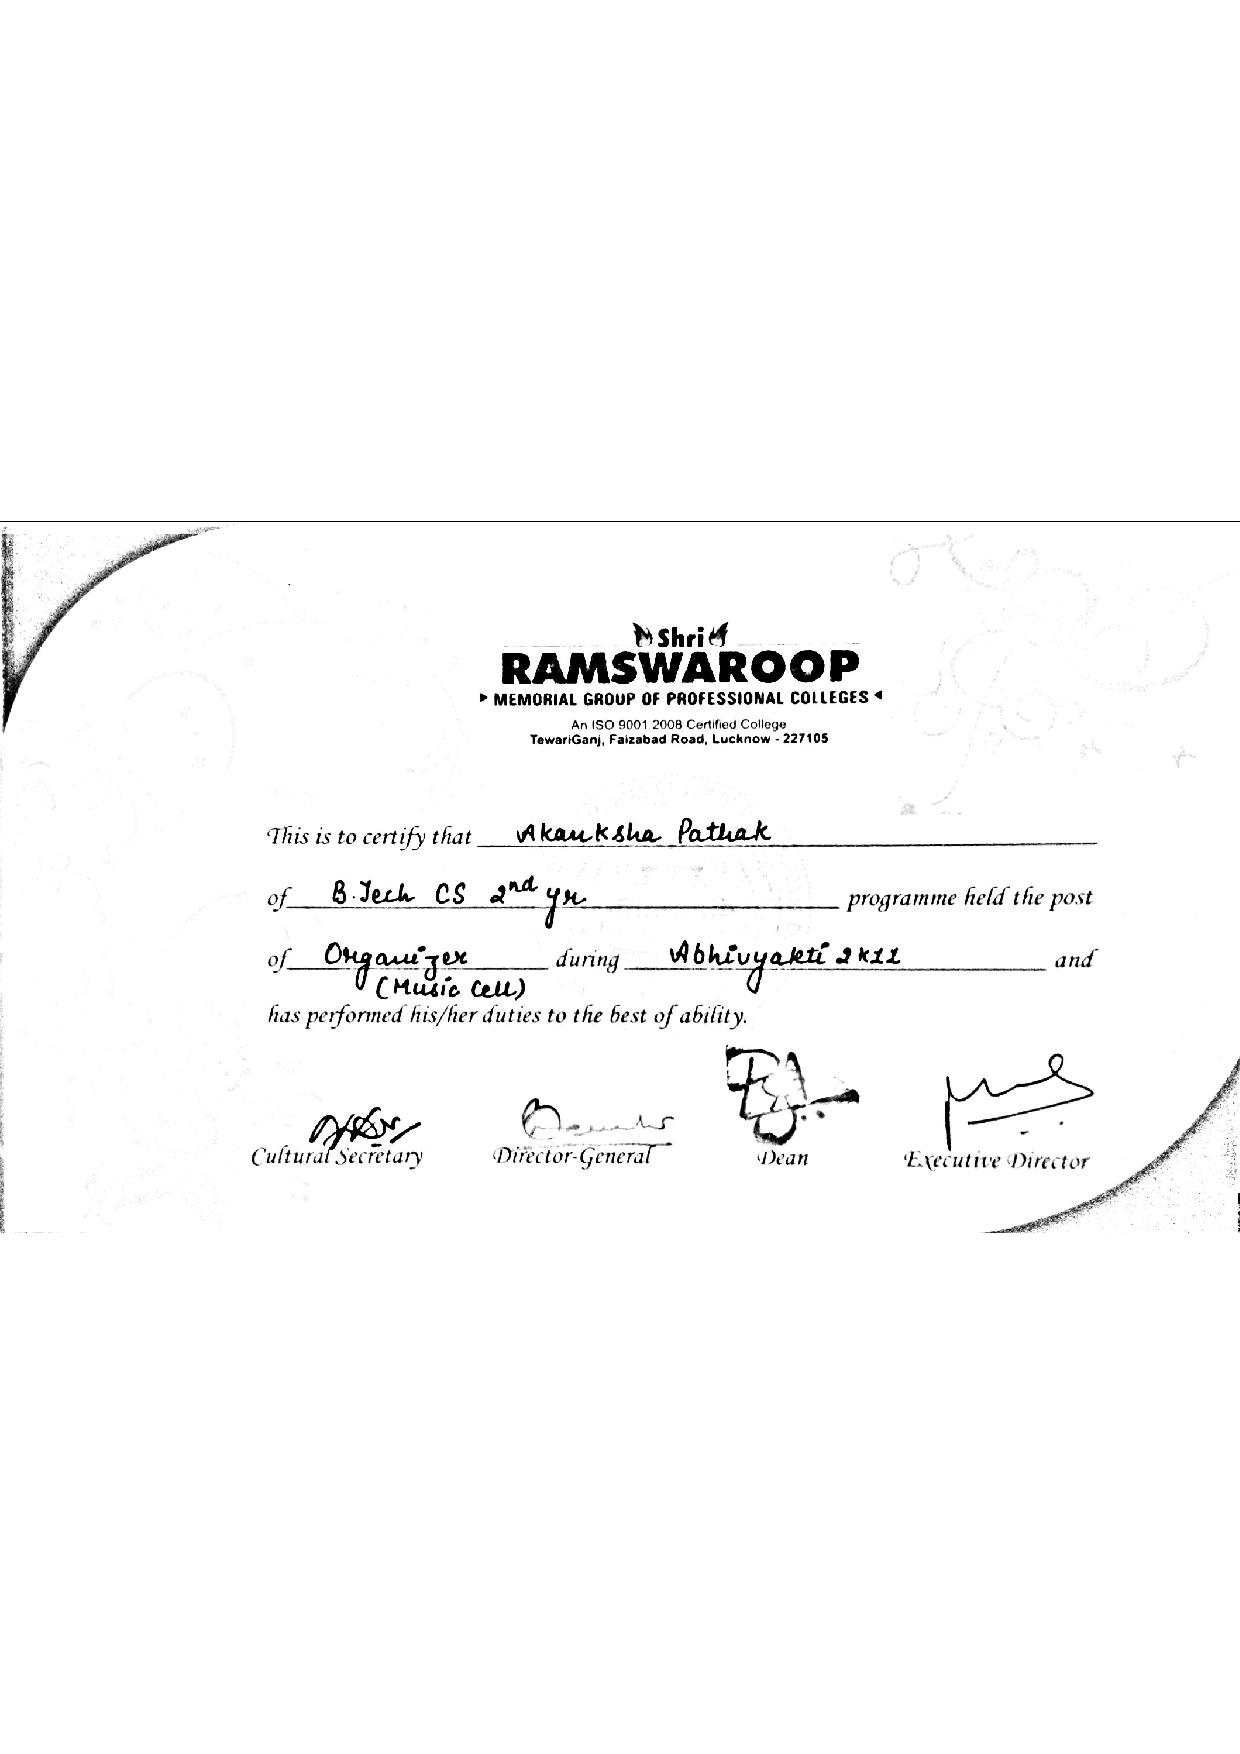 Shri
RAMSWAROOP
MEMORIAL GROUP OF PROFESSIONAL COLLEGES
An ISO 9001 2008 Certified College
TewariGanj, Faizabad Road, Lucknow - 227105
This is to certify that Akanksha Pathak
of B.Tech CS 2nd yr programme held the post
of Organizer during Abhivyakti 2k11 and
(Music Cell)
has performed his/her duties to the best of ability.
Cultural Secretary Director-General Dean Executive Director